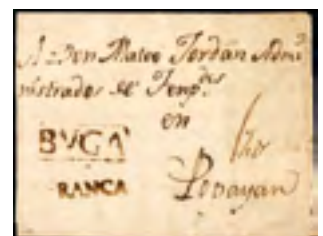 A Don Mateo Jordan Admi
nistrador de Temp.es
en
BVGA
RANCA
Popayan